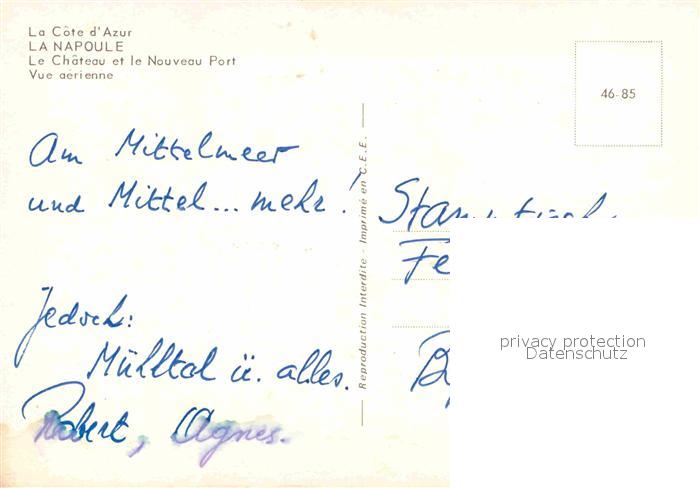 La Côte d'Azur
LA NAPOULE
Le Château et le Nouveau Port
Vue aérienne
46-85
Am Mittelmeer
und Mittel... mehr!
Jedoch:
Mühltal ü. alles.
Robert, Agnes.
Reproduction Interdite - Imprimé en C.E.E.
Fe
privacy protection
Datenschutz